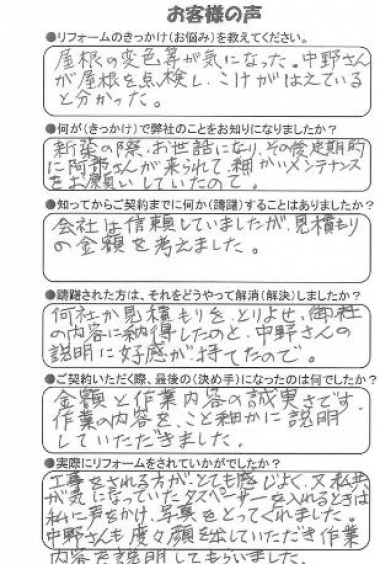 お客様の声
●リフォームのきっかけ(お悩み)を教えてください。
屋根の変色等が気になった。中野さん
が屋根を点検し、こけがはえている
と分かった。
●何が(きっかけ)で弊社のことをお知りになりましたか?
新築の際、お世話になり、その後定期的
に阿部さんが来られて、細かいメンテナンス
をお願いしていたので。
●知ってからご契約までに何か(躊躇)することはありましたか?
会社は信頼していましたが、見積もり
の金額を考えました。
●躊躇された方は、それをどうやって解消(解決)しましたか?
何社か見積もりをとりよせ、御社
の内容に納得したのと、中野さんの
説明に好感が持てたので。
●ご契約いただく際、最後の(決め手)になったのは何でしたか?
金額と作業内容の誠実さです。
作業の内容を、こと細かに説明
していただきました。
●実際にリフォームをされていかがでしたか?
工事をされる方がとても感じよく、又私共
が気になっていたタスペーサーを入れるときは
私に声をかけ、写真をとってくれました。
中野さんも度々顔を出していただき作業
内容を説明してもらいました。